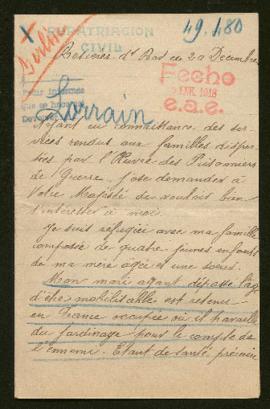 RAPATRIACION
CIVIL
49.480
Berlin
Lorrain
Fecho
ENE. 1918
e.a.e.
Ayant eu connaissance des ser-
vices rendus aux familles disper-
sées par l'Œuvre des Prisonniers
de Guerre. J'ose demander à
Votre Majesté de vouloir bien
s'intéresser à moi.
Je suis réfugiée avec ma famille
composée de quatre jeunes enfants
de ma mère âgée et une soeur.
Mon mari ayant dépassé l'âge
d'être mobilisable est retenu
en France occupée où il travaille
du jardinage pour le compte de
l'ennemi. Etant de santé précaire